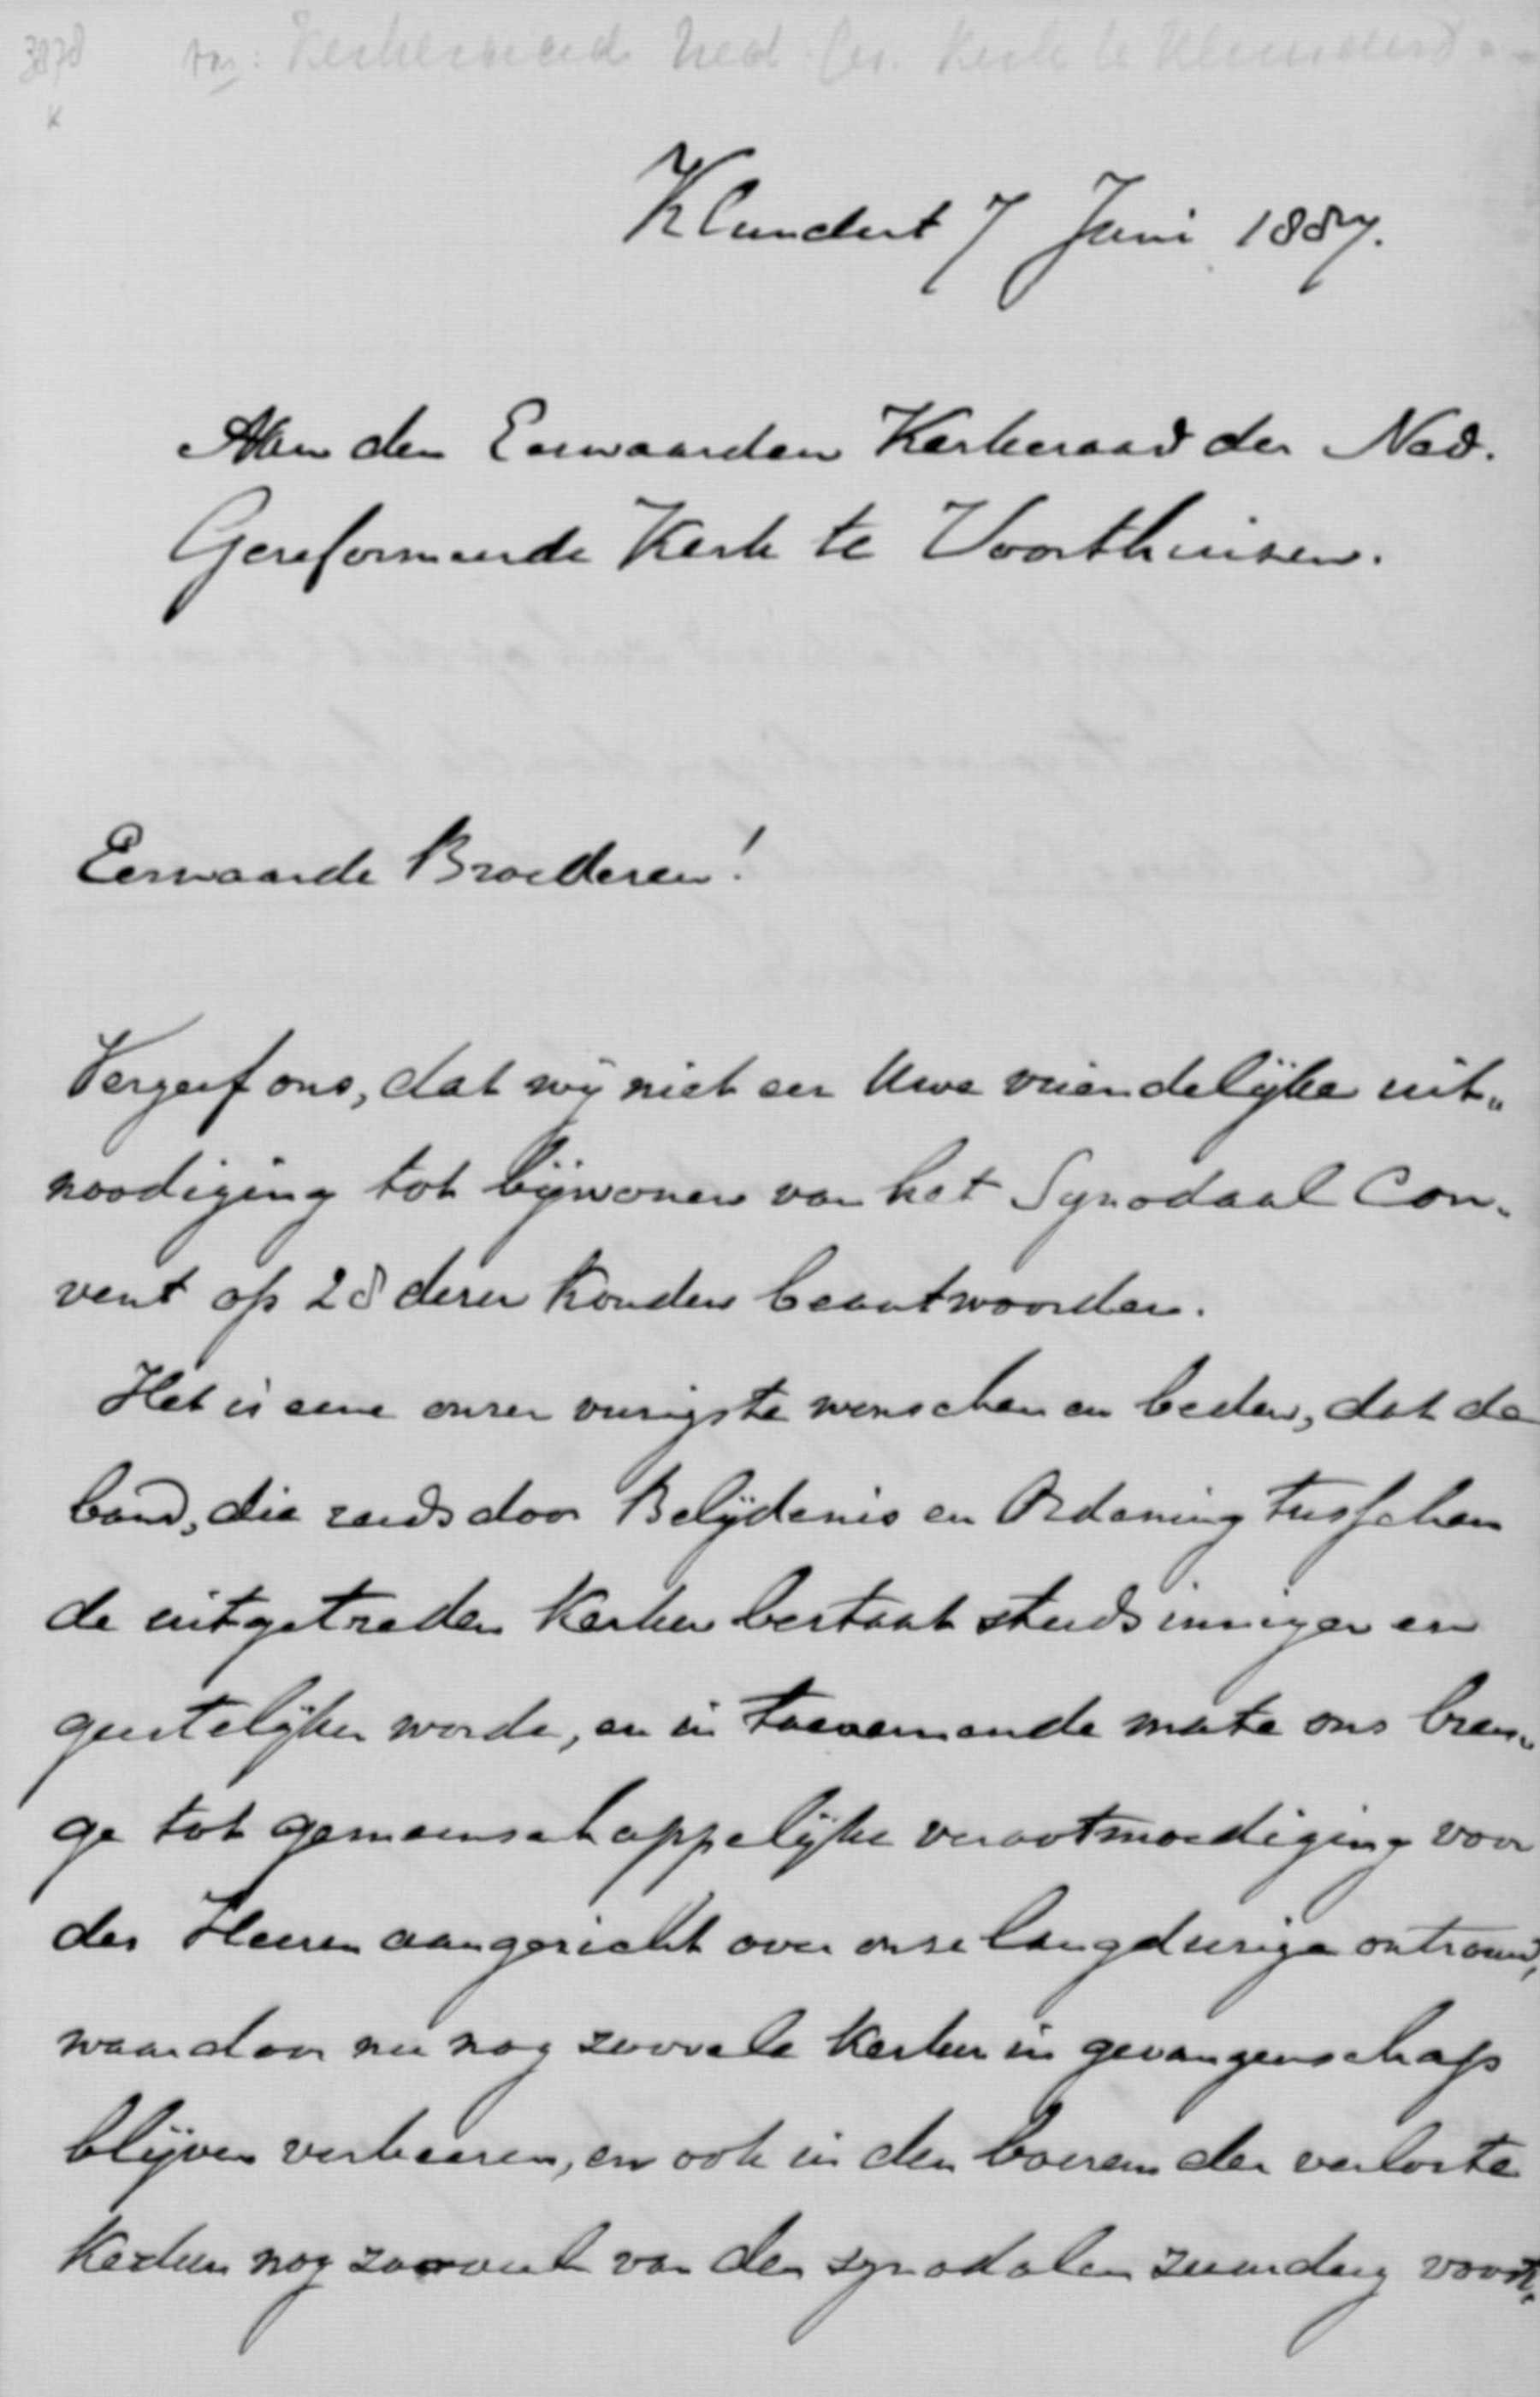 3878 van: Kerkeraad Ned. Ger. Kerk te Klundert
x
Klundert 7 Juni 1887.
Aan den Eerwaarden Kerkeraad der Ned.
Gereformeerde Kerk te Voorthuizen.
Eerwaarde Broederen!
Vergeef ons, dat wij niet eer Uwe vriendelijke uit„
noodiging tot bijwonen van het Synodaal Con„
vent op 28 dezer konden beantwoorden.
Het is eene onzer vurigste wenschen en beden, dat de
band, die reeds door Belijdenis en Ordening tusschen
de uitgetreden Kerken bestaat steeds inniger en
geestelijker worde, en in toenemende mate ons bren„
ge tot gemeenschappelijke verootmoediging voor
des Heeren aangezicht over onze langdurige ontrouw,
waardoor nu nog zoovele Kerken in gevangenschap
blijven verkeeren, en ook in den boezem der verloste
Kerken nog zooveel van den synodalen zuurdeeg voort„